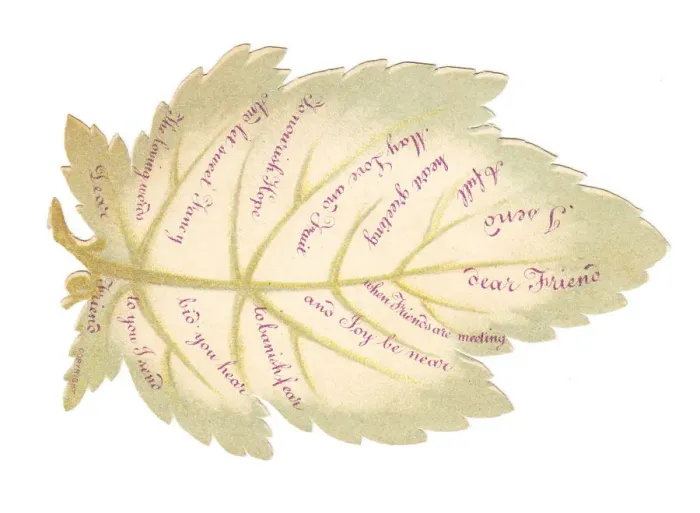 I send
dear Friend
A full
heart greeting
when Friends are meeting
May Love and Trust
and Joy be near
To nourish Hope
to banish fear
And let sweet Fancy
bid you hear
The loving words
to you I send
Dear
Friend
COPYRIGHT